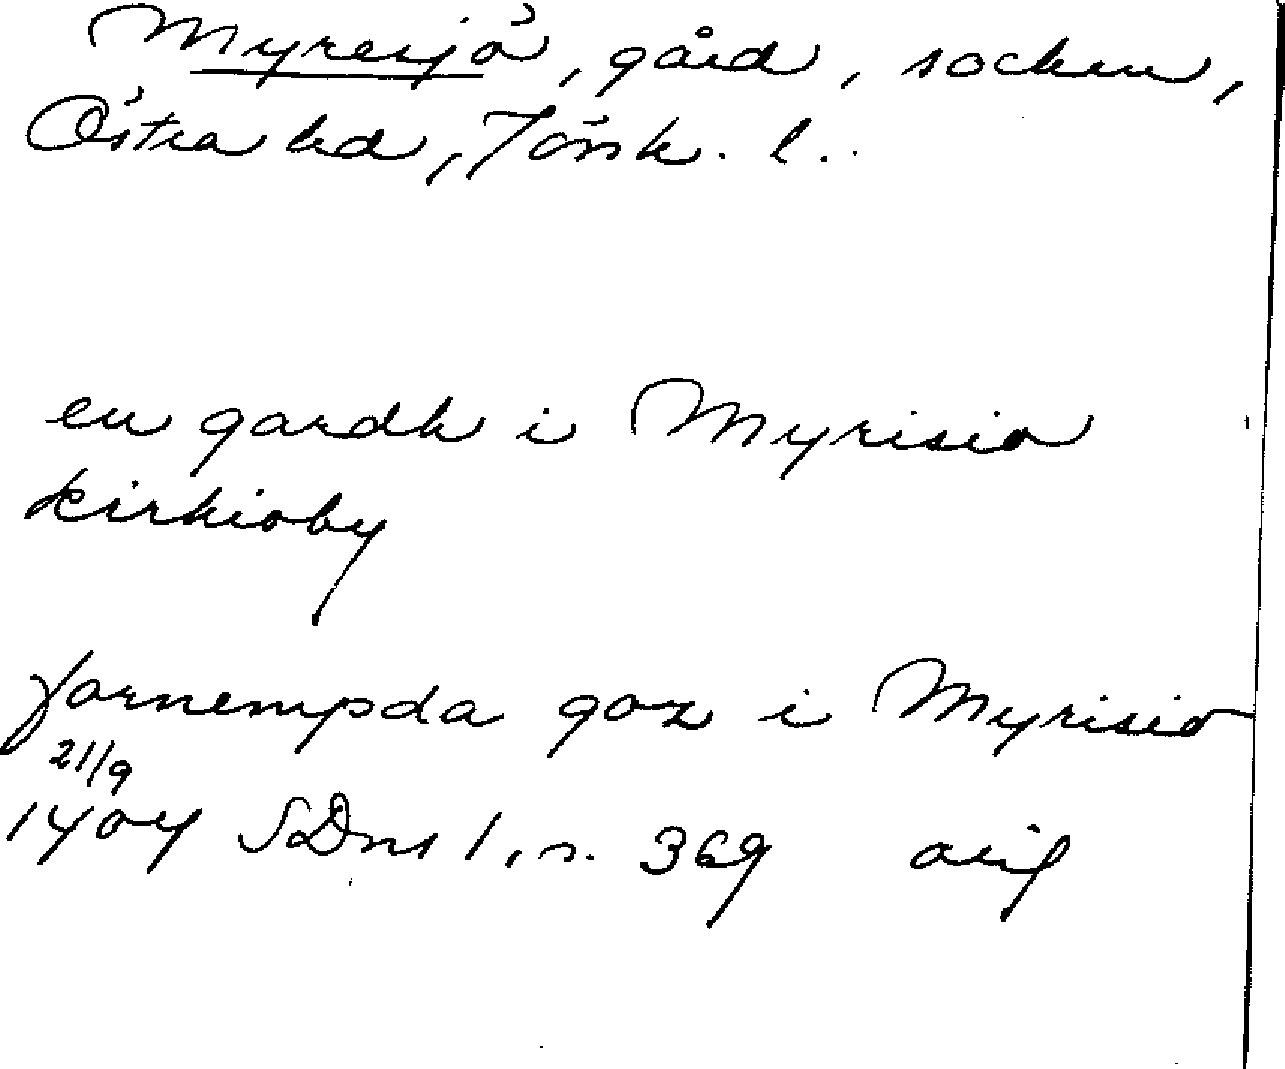 Myresjö, gård, socken,
Östra hd, Jönk. l.
en gardh i Myrisio
kirkioby
fornempda goz i Myrisio
21/9
1404 SDns 1, n. 369 avif